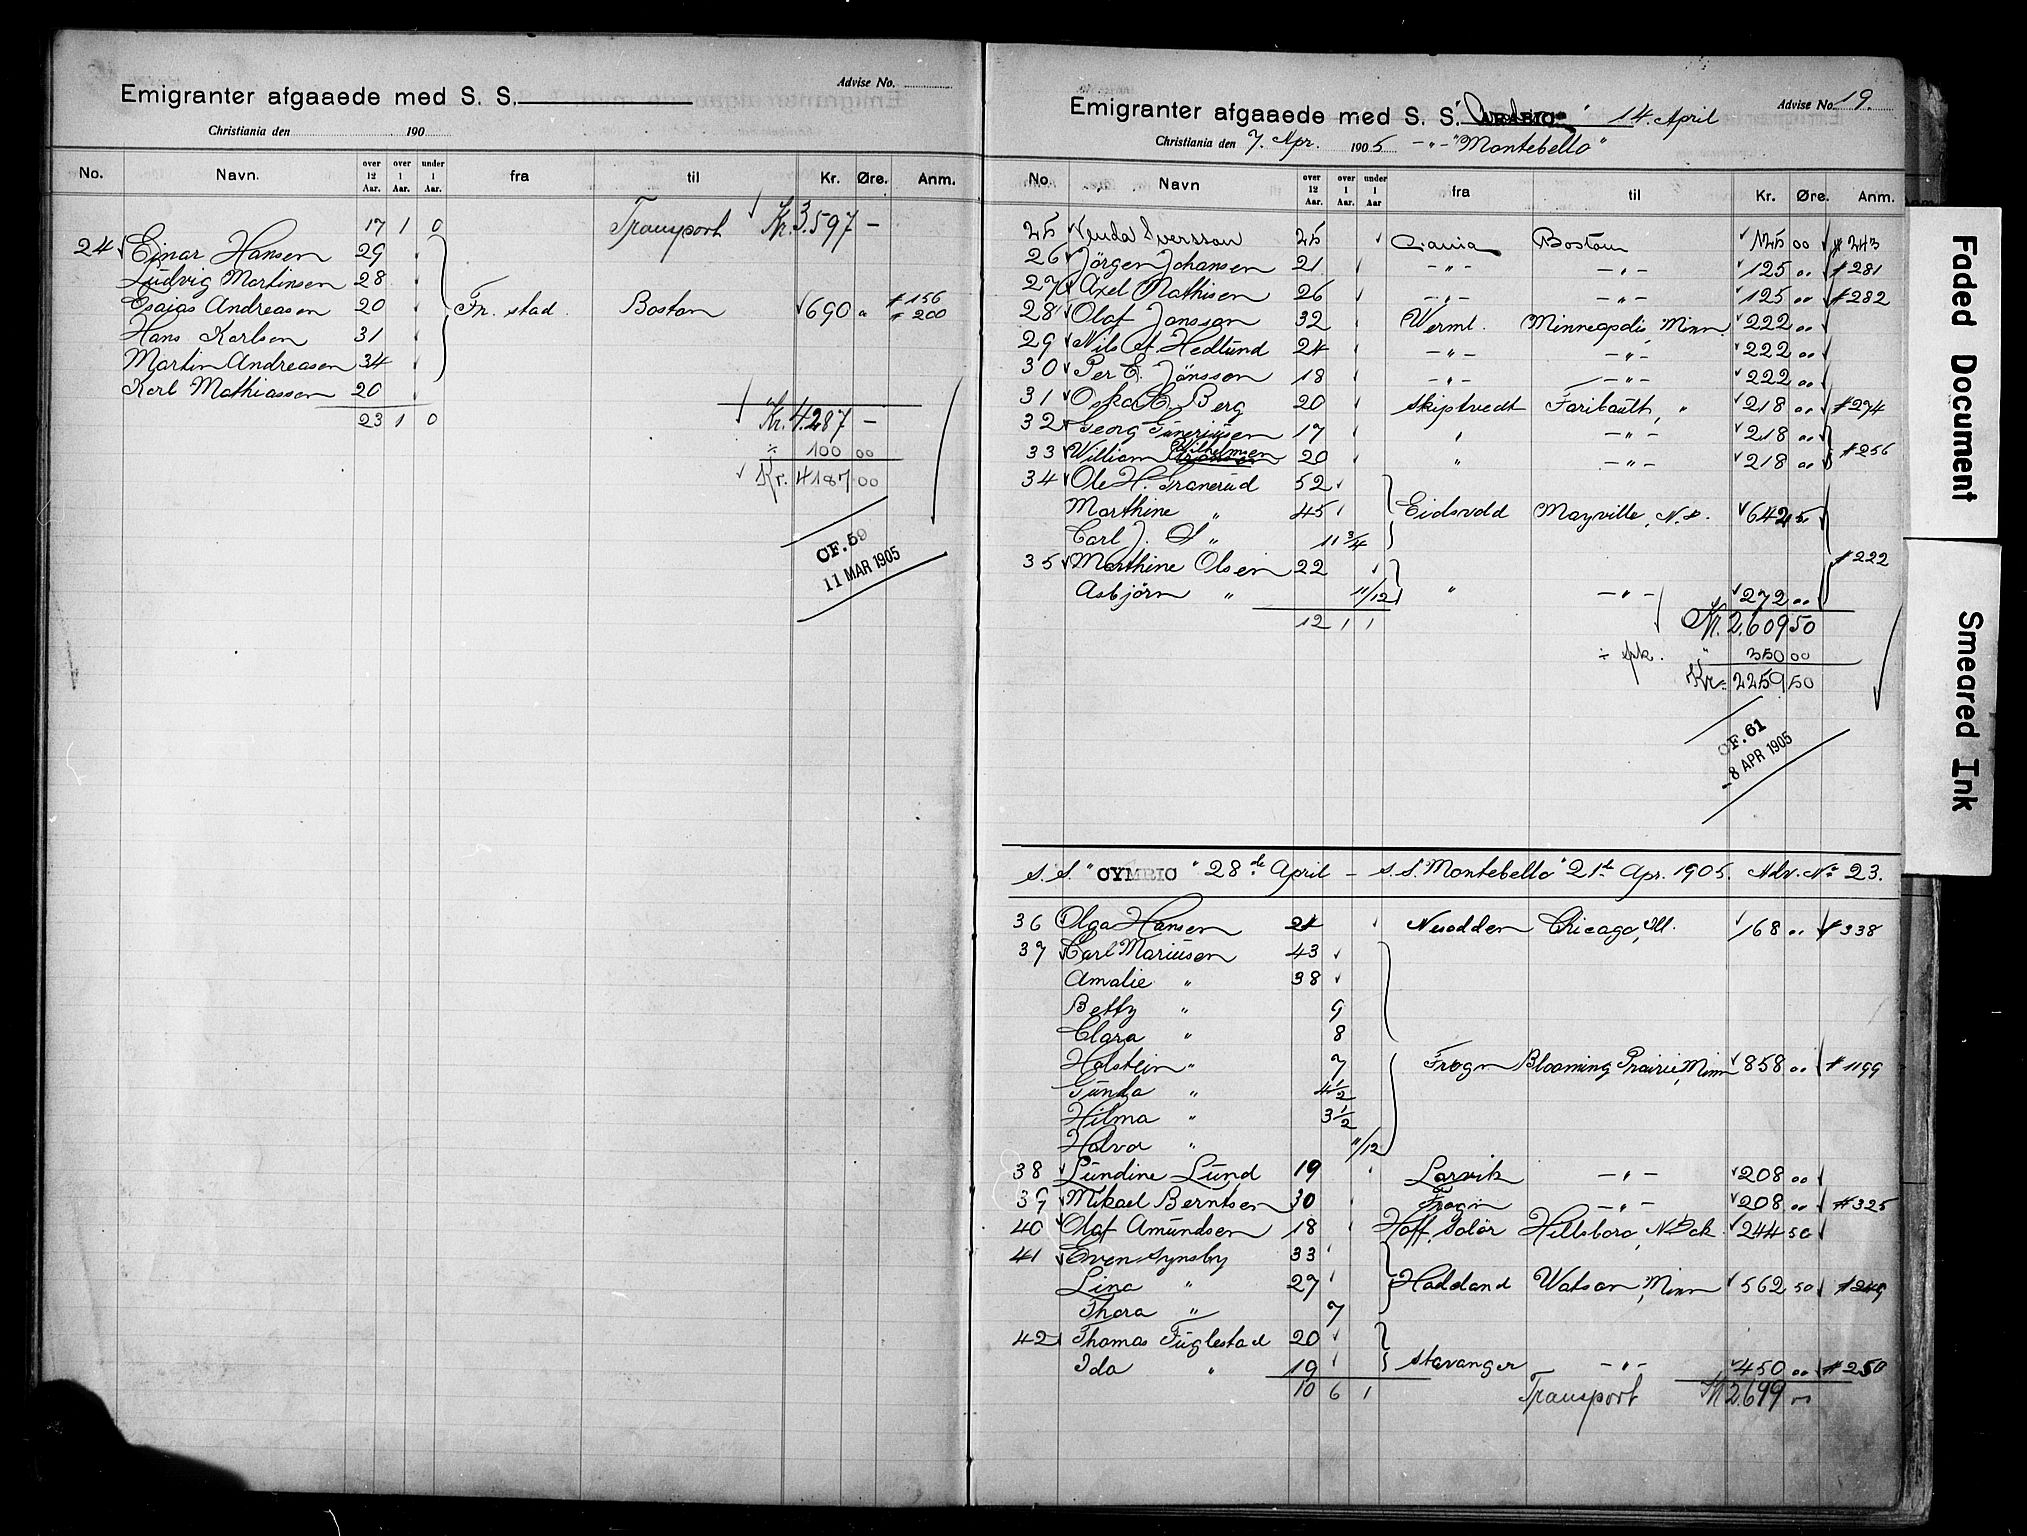 Advise No.
Emigranter afgaaede med S. S.
Christiania den 190
No. Navn. over 12 Aar. over 1 Aar. under 1 Aar. fra til Kr. Øre. Anm.
17 1 0 Transport Kr. 3.597 —
24 Einar Hansen 29
Ludvig Martinsen 28
Esaias Andreasen 20 Fr. stad. Boston 690 " # 156 " 200
Hans Karlsen 31
Martin Andreasen 34
Karl Mathiassen 20
23 1 0 Kr. 4.287 —
÷ 100 00
Kr. 4187 00
CF. 59
11 MAR 1905
Advise No. 19.
Emigranter afgaaede med S. S. "ARABIC" 14. April
Christiania den 7. Apr. 1905 -"- "Montebello"
No. Navn over 12 Aar. over 1 Aar. under 1 Aar fra til Kr. Øre. Anm.
25 Svensson 25 Cania Boston 125 00 # 243
26 Jörgen Johansen 21 -"- -"- 125 " # 281
27 Axel Mathisen 26 -"- -"- 125 " # 282
28 Olaf Jansson 32 Werml. Minneapolis, Minn 222 "
29 Nils A. Hedlund 24 -"- -"- 222 "
30 Per E. Jönsson 18 -"- -"- 222 "
31 Oskar C. Berg 20 Skiptvedt Faribault, " 218 " # 274
32 Georg Guneriusen 17 " -"- 218 "
33 William Wilhelmsen 20 " -"- 218 " # 256
34 Ole H. Tranerud 52
Marthine " 45 Eidsvold Mayville, N.D. 642 50
Carl J. A " 11 3/4
35 Marthine Olsen 22 # 222
Asbjörn " 11/12 " -"- 272 "
12 1 1 Kr. 2.609 50
÷ ppk. " 350 00
Kr. 2259 50
CF. 61
- 8 APR 1905
S. S. "CYMRIC" 28de April — S. S. Montebello" 21de Apr. 1905. Adv. No 23.
36 Olga Hansen 21 Nesodden Chicago, Ill. 168 " # 338
37 Carl Mariusen 43
Amalie " 38
Betty " 9
Clara " 8
Holstein " 7 Frogn Blooming Prairie, Minn 858 " # 1199
Gunda " 4 1/2
Hilma " 3 1/2
Halvor " 11/12
38 Lundine Lund 19 Larvik -"- 208 "
39 Mikael Berntsen 30 Frogn -"- 208 " # 325
40 Olaf Amundsen 18 Hoff, Solör Hillsboro, N. Dak. 244 50
41 Even Synsby 33
Lina " 27 Hadeland Watson, Minn 562 50 # 249
Thora " 7
42 Thomas Fuglestad 20
Ida " 19 Stavanger -"- 450 " # 250
10 6 1 Transport Kr. 2.699 "
Faded Document
Smeared Ink